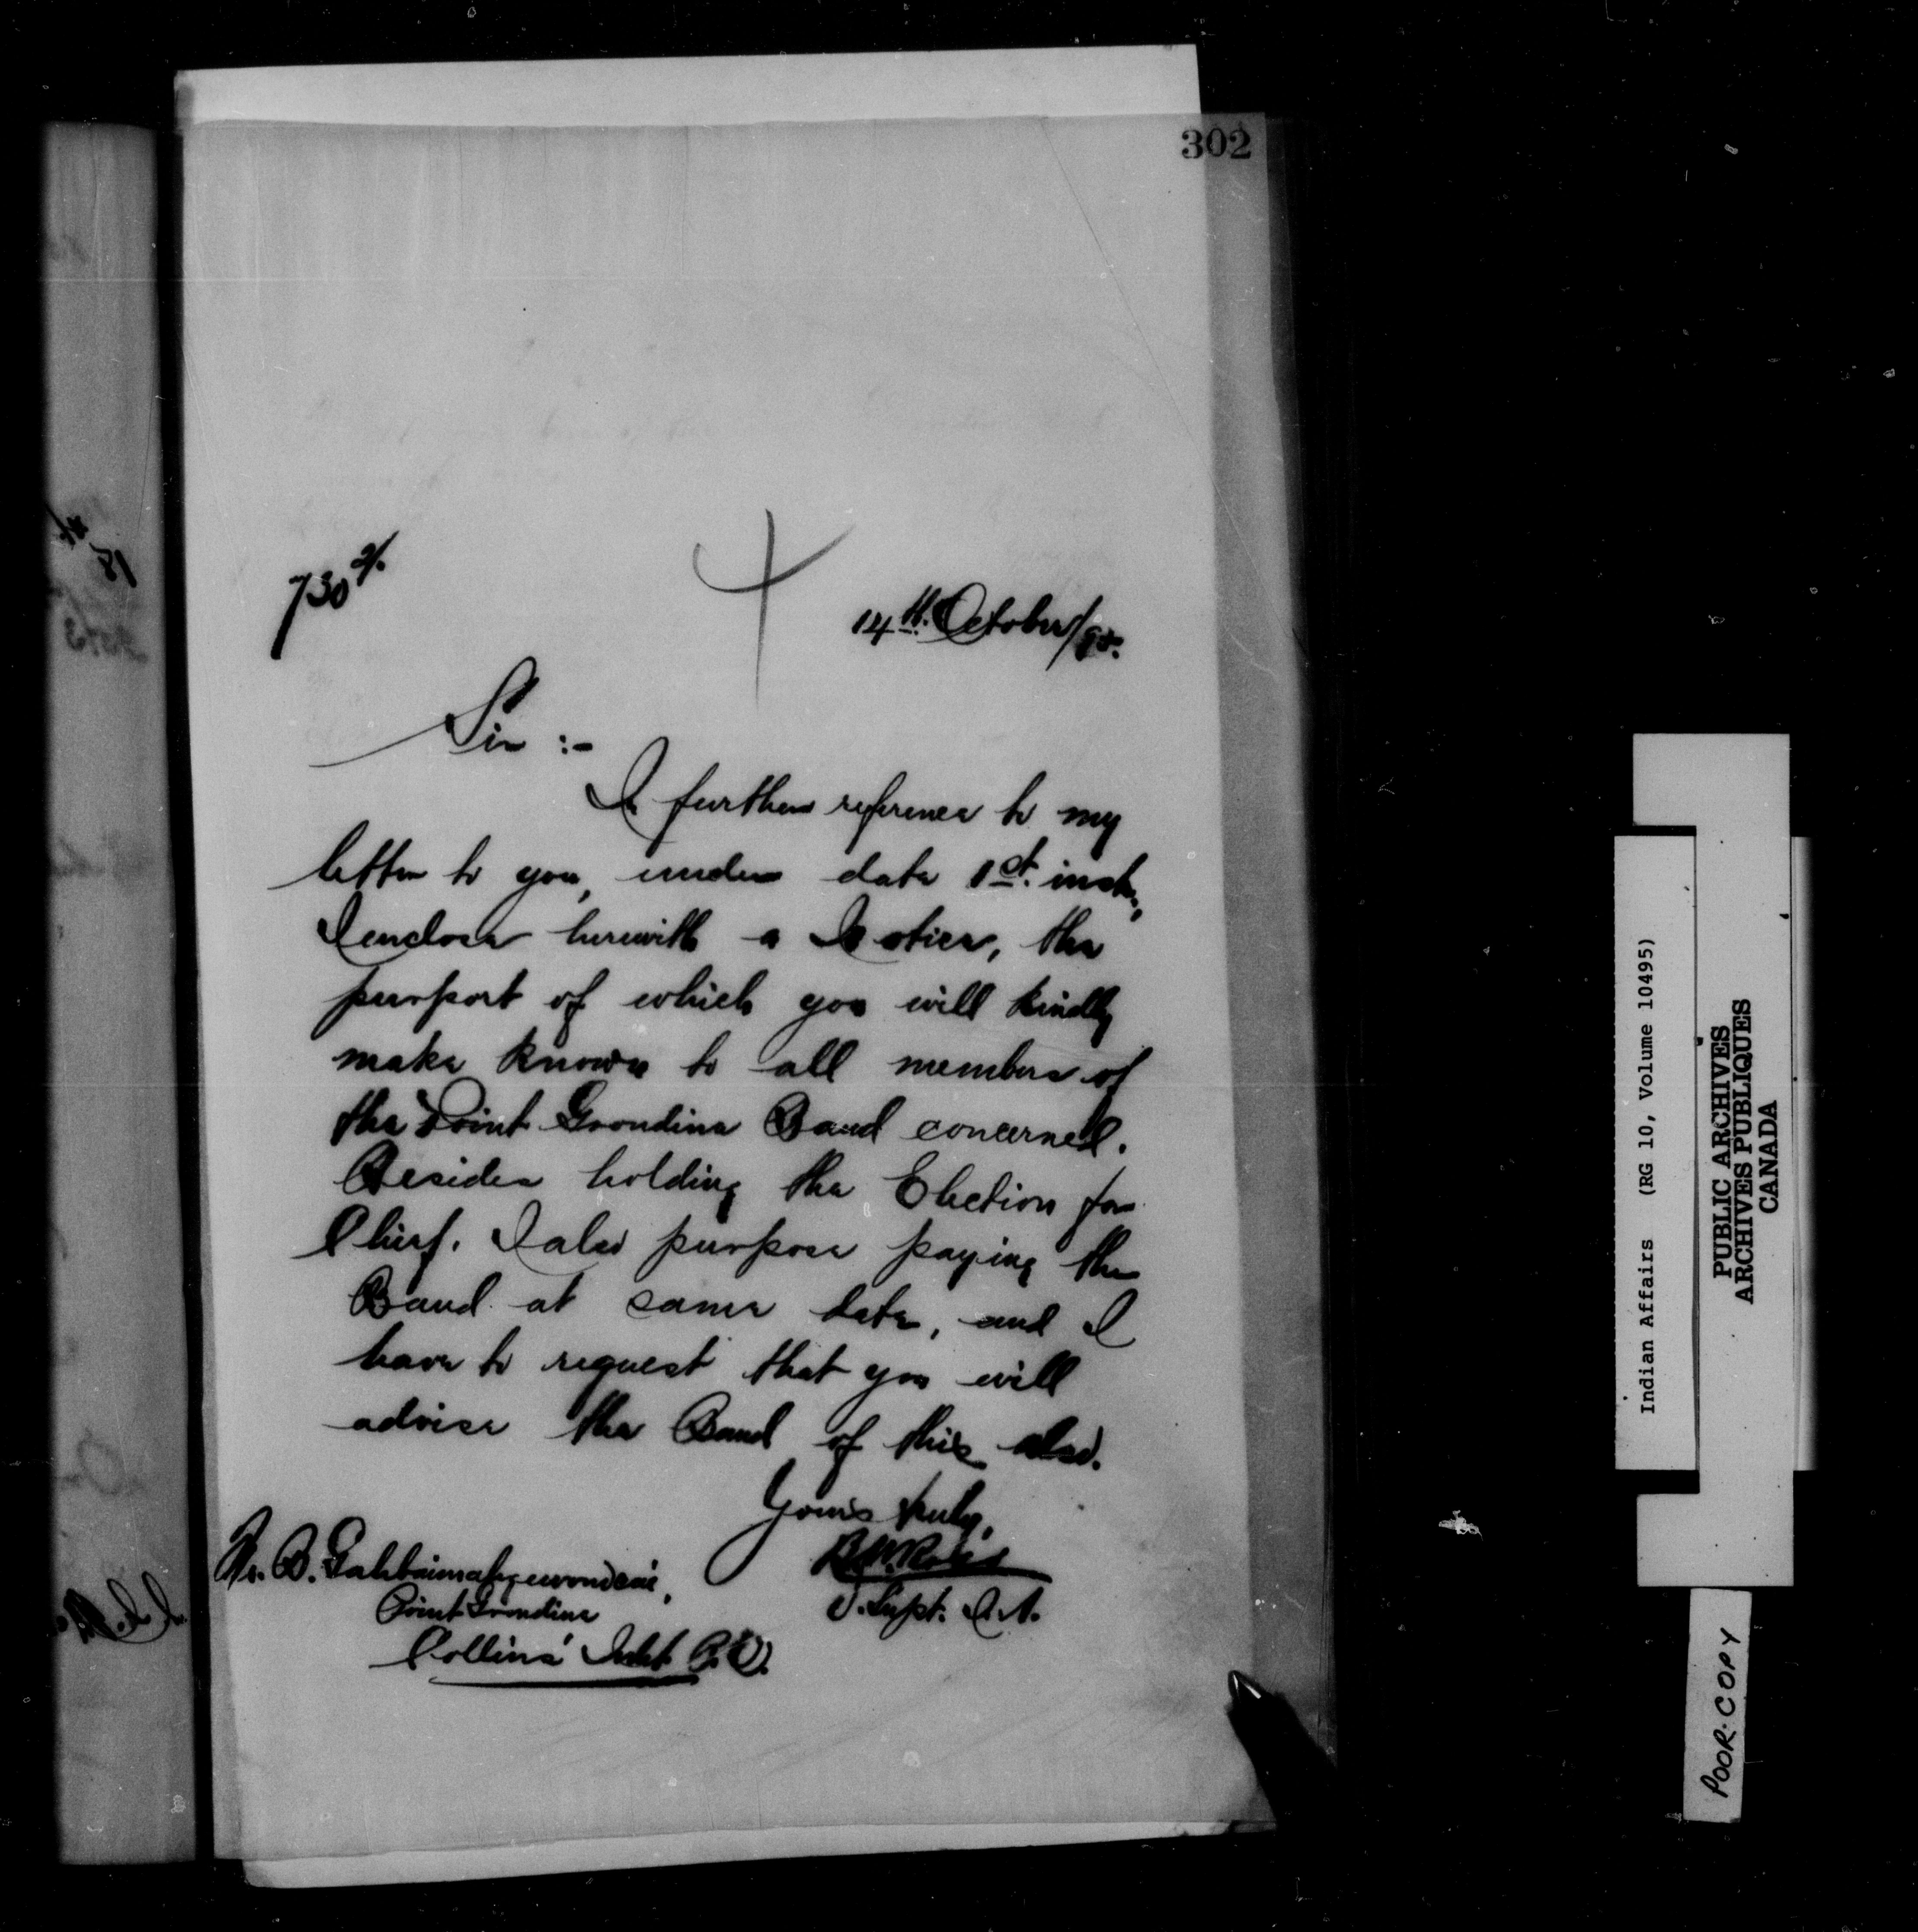 302
730
14th. October/95.
Sir :-
In further reference to my
letter to you, under date 1st. inst.,
I enclose herewith a Notice, the
purport of which you will kindly
make known to all members of
the Point Grondine Band concerned.
Besides holding the Election for
Chief. I also purpose paying the
Band at same date, and I
have to request that you will
advise the Band of this also.
Yours truly,
B.W. Ross
V. Supt. I.A.
Mr. B.
Point Grondine
Collins' Inlet P.O.
Indian Affairs (RG 10, Volume 10495)
PUBLIC ARCHIVES
ARCHIVES PUBLIQUES
CANADA
POOR COPY